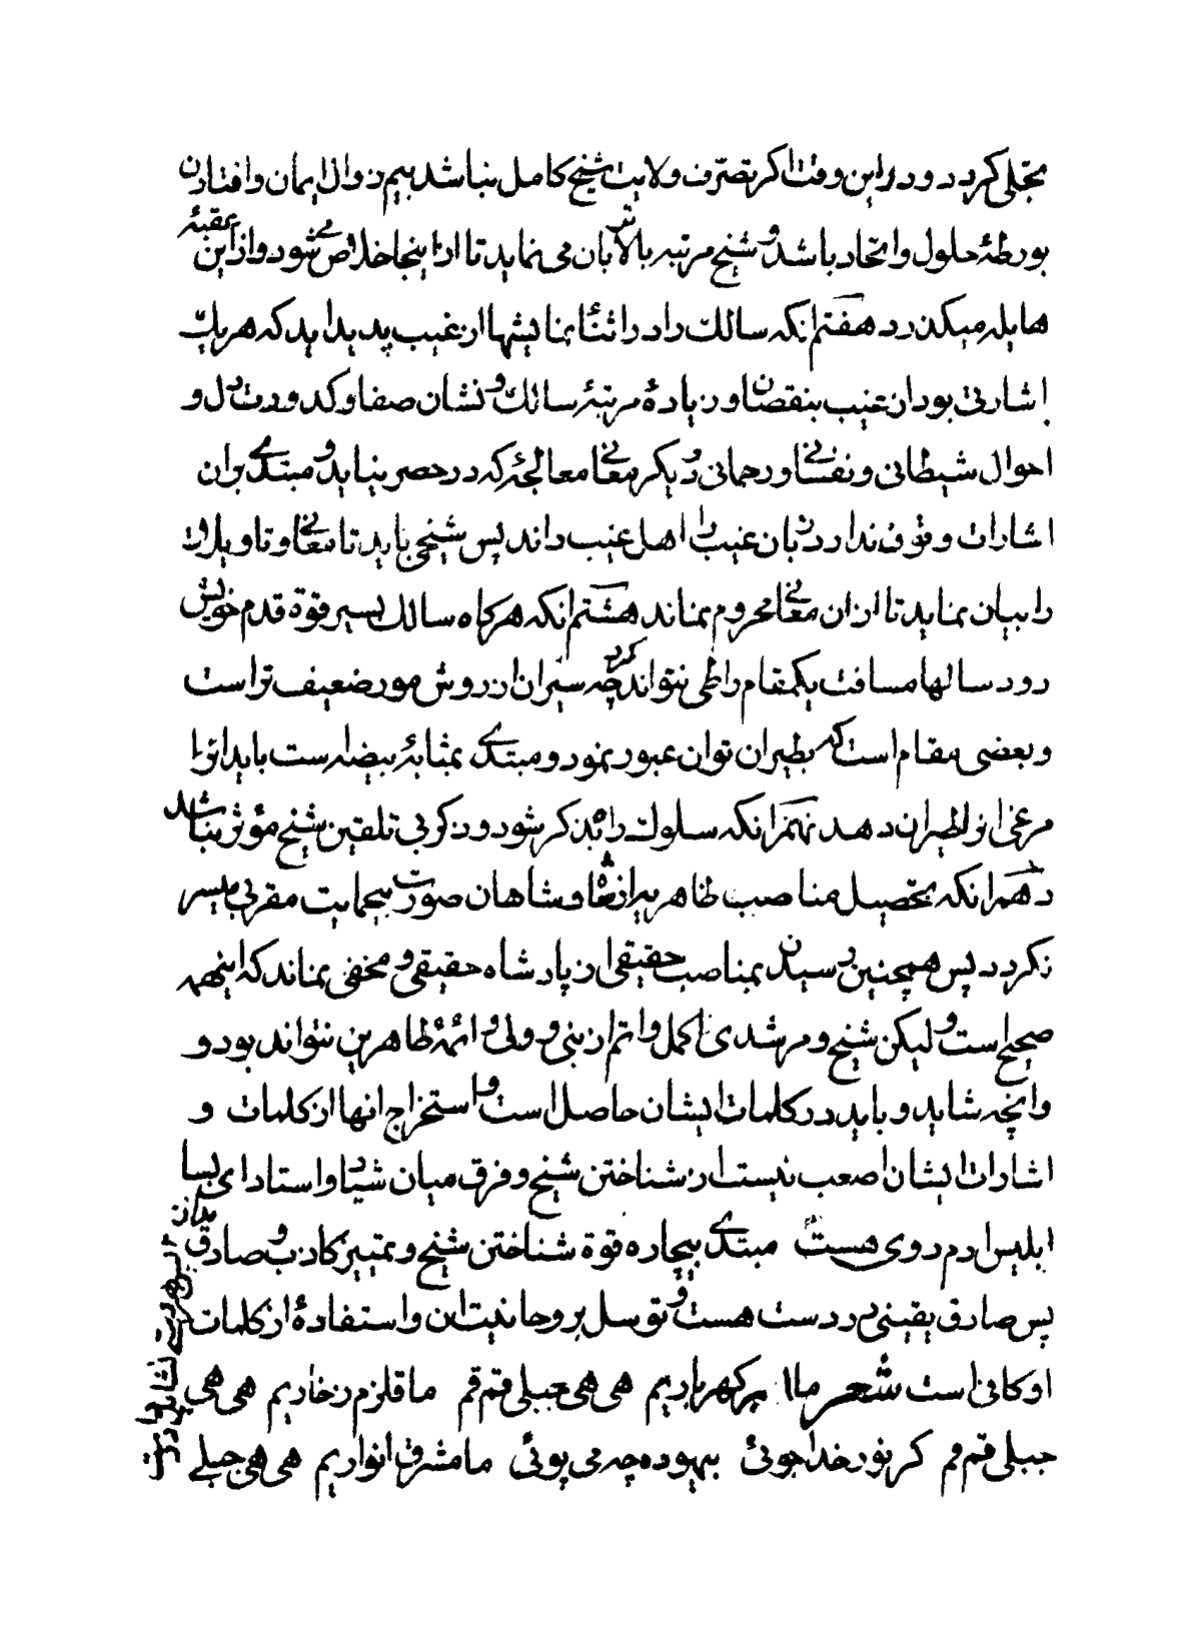 متجلی کردد و در این وقت اکر تصرف ولایت شیخ کامل نباشد بیم زوال ایمان وافتادن
بورطهٔ حلول واتحاد باشد و شیخ مرتبه بالاتر بان می نماید تا از اینجا خلاص می شود و از این عقبهٔ
هایله میکذرد هفتم انکه سالک را در اثنا نمایشها از غیب پدید اید که هر یک
اشارتی بود از غیب بنقصان و زیادهٔ مرتبهٔ سالک و نشان صفا و کدورت دل و
احوال شیطانی و نفسانی و رحمانی و دیکر معانی معالجهٔ که در حصر نیاید و مبتدی بران
اشارات وقوف ندارد زبان غیب را اهل غیب داند پس شیخی باید تا معانی و تاویلات
را بیان نماید تا از ان معانی محروم نماند هشتم انکه هر کاه سالک بسیر قوة قدم خویش
رود سالها مسافت یکمقام را طی نتواند کرد چه سیر ان از روش مور ضعیف تر است
و بعضی مقام است که بطیران توان عبور نمود و مبتدی بمثابهٔ بیضه است باید او را
مرغی او را طیران دهد نهم انکه سلوک راه بذکر شود و ذکر بی تلقین شیخ مؤثر نباشد
دهم انکه تحصیل مناصب ظاهریه از شاه و شاهان صورت بیحمایت مقربی میسر
نکردد پس همچنین رسیدن بمناصب حقیقی از پادشاه حقیقی و مخفی نماند که اینهمه
صحیح است و لیکن شیخ و مرشدی اکمل و اتم از نبی و ولی و ائمهٔ طاهرین نتواند بود و
وانچه شاید و باید در کلمات ایشان حاصل است و استخراج انها از کلمات و
اشارات ایشان اصعب نیست از شناختن شیخ و فرق میان شیاد و استاد ای بسا
ابلیس ادم روی هست مبتدی بیچاره قوة شناختن شیخ و تمییز کاذب و صادق
پس صادق یقینی در دست هست و توسل بروحانیت ان و استفادهٔ از کلمات
او کافی است شعر ما ابر کهرباریم هی هی جبلی قم قم ما قلزم زخاریم هی هی
جبلی قم قم کر نور خدا جوئی بیهوده چه می پوئی ما مشرق انواریم هی هی جبلی